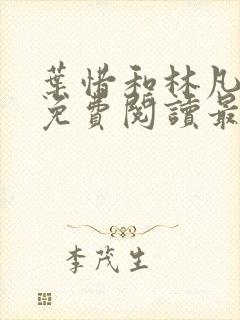 葉惜和林凡
免費閱讀最
李茂生